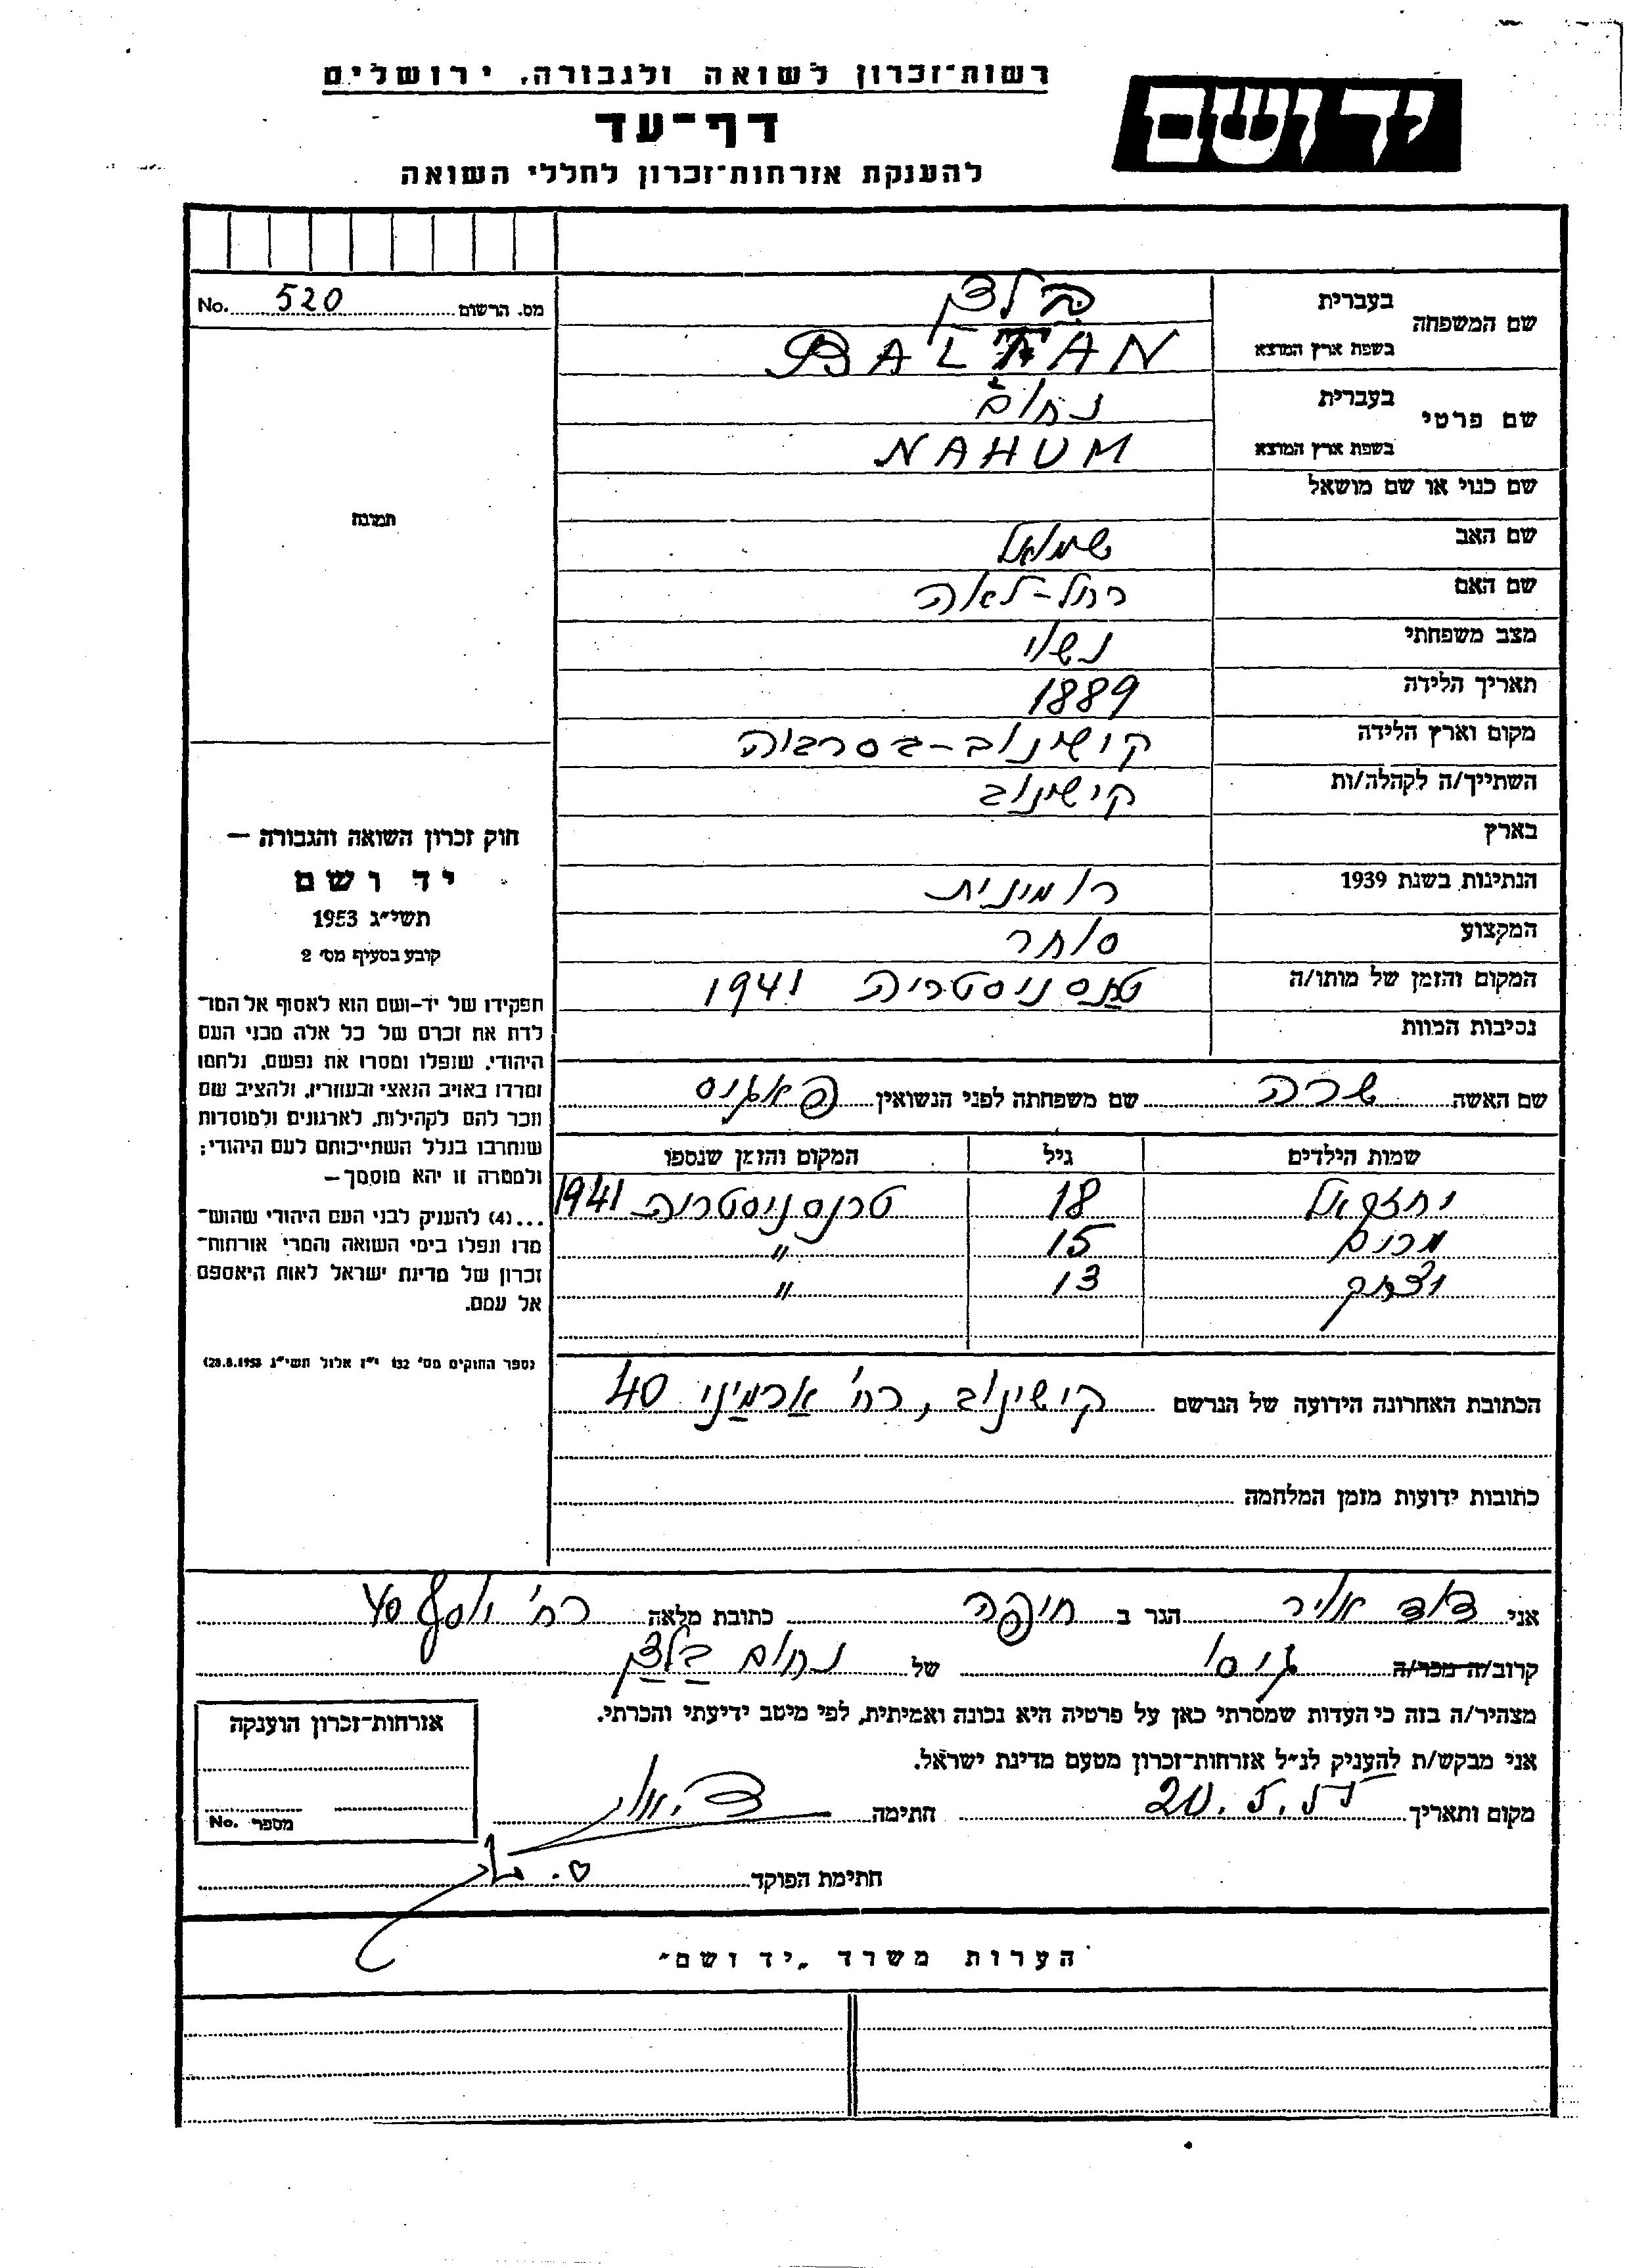 ידושם
רשות־זכרון לשואה ולגבורה, ירושלים
דף־עד
להענקת אזרחות־זכרון לחללי השואה
מס. הרשום 520 No.
שם המשפחה
בעברית בלצן
בשפת ארץ המוצא BALTAN
שם פרטי
בעברית נחום
בשפת ארץ המוצא NAHUM
שם כנוי או שם מושאל
שם האב שמואל
שם האם רחל-לאה
מצב משפחתי נשוי
תאריך הלידה 1889
מקום וארץ הלידה קושינוב-בסרביה
השתייך/ה לקהלה/ות קישינוב
בארץ
הנתינות בשנת 1939 רומנית
המקצוע סוחר
המקום והזמן של מותו/ה טנסניסטריה 1941
נסיבות המוות
שם האשה שרה שם משפחתה לפני הנשואין
שמות הילדים גיל המקום והזמן שנספו
יחזקאל 18 טרנסניסטריה 1941
מרים 15 "
יצחק 13 "
הכתובת האחרונה הידועה של הנרשם קושינוב, רח' ארמיני 40
כתובות ידועות מזמן המלחמה
תמונה
חוק זכרון השואה והגבורה —
יד ושם
תשי״ג 1953
קובע בסעיף מס׳ 2
תפקידו של יד-ושם הוא לאסוף אל המו־
לדת את זכרם של כל אלה מבני העם
היהודי, שנפלו ומסרו את נפשם, נלחמו
ומרדו באויב הנאצי ובעוזריו, ולהציב שם
וזכר להם לקהילות, לארגונים ולמוסדות
שנחרבו בגלל השתייכותם לעם היהודי;
ולמטרה זו יהא מוסמך—
...(4) להעניק לבני העם היהודי שהוש־
מדו ונפלו בימי השואה והמרי אזרחות־
זכרון של מדינת ישראל לאות היאספם
אל עמם.
(ספר החוקים מס׳ 132 י״ז אלול תשי״ג 28.8.1953)
אני דוד אליר הגר ב חיפה כתובת מלאה רח' יוסף 40
קרוב/ה מכר/ה גיסו של נחום בלצן
מצהיר/ה בזה כי העדות שמסרתי כאן על פרטיה היא נכונה ואמיתית, לפי מיטב ידיעתי והכרתי.
אני מבקש/ת להעניק לנ״ל אזרחות־זכרון מטעם מדינת ישראל.
מקום ותאריך 20.5.57 חתימה
חתימת הפוקד
אזרחות־זכרון הוענקה
מספר No.
הערות משרד „יד ושם״